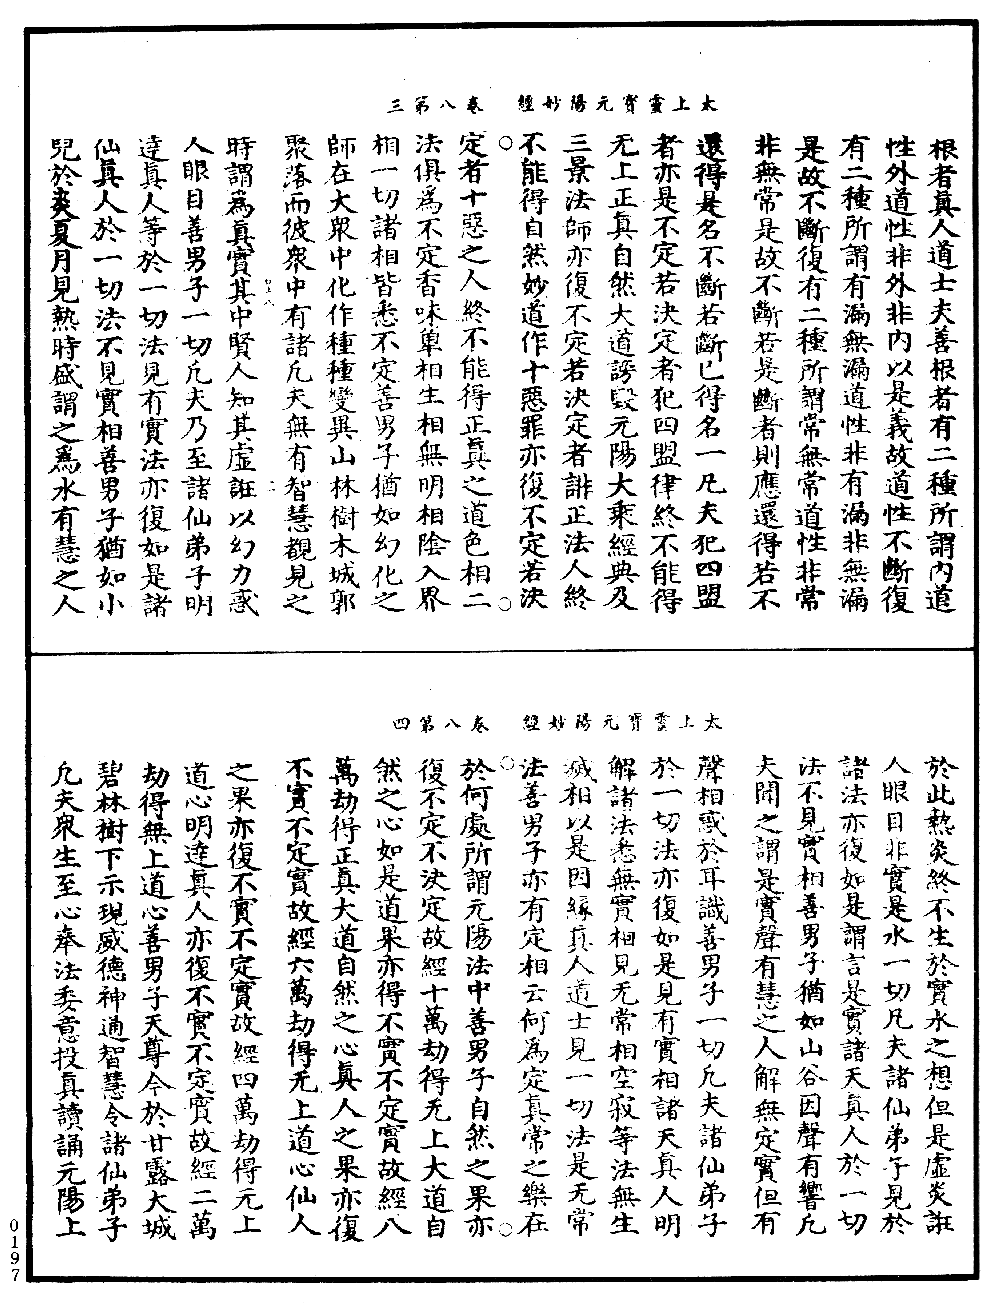 太上靈寶元陽妙經　卷八第三
根者眞人道士夫善根者有二種所謂內道
性外道性非外非內以是義故道性不斷復
有二種所謂有漏無漏道性非有漏非無漏
是故不斷復有二種所謂常無常道性非常
非無常是故不斷若是斷者則應還得若不
還得是名不斷若斷已得名一凡夫犯四盟
者亦是不定若決定者犯四盟律終不能得
无上正真自然大道謗毀元陽大乘經典及
三景法師亦復不定若決定者誹正法人終
不能得自然妙道作十惡罪亦復不定若決
定者十惡之人終不能得正真之道色相二
法俱爲不定香味車相生相無明相陰入界
相一切諸相皆悉不定善男子猶如幻化之
師在大衆中化作種種變異山林樹木城郭
聚落而彼衆中有諸凡夫無有智慧覩見之
時謂爲真實其中賢人知其虛誑以幻力惑
人眼目善男子一切凡夫乃至諸仙弟子明
達真人等於一切法見有實法亦復如是諸
仙眞人於一切法不見實相善男子猶如小
兒於炎夏月見熱時盛謂之爲水有慧之人
太上靈寶元陽妙經　卷八第四
於此熱炎終不生於實水之想但是虛炎誑
人眼目非實是水一切凡夫諸仙弟子見於
諸法亦復如是謂言是實諸天真人於一切
法不見實相善男子猶如山谷因聲有響凡
夫聞之謂是實聲有慧之人解無定實但有
聲相惑於耳識善男子一切凡夫諸仙弟子
於一切法亦復如是見有實相諸天真人明
解諸法悉無實相見无常相空寂等法無生
滅相以是因緣真人道士見一切法是无常
法善男子亦有定相云何爲定真常之樂在
於何處所謂元陽法中善男子自然之果亦
復不定不決定故經十萬劫得无上大道自
然之心如是道果亦得不實不定實故經八
萬劫得正真大道自然之心真人之果亦復
不實不定實故經六萬劫得无上道心仙人
之果亦復不實不定實故經四萬劫得元上
道心明達真人亦復不實不定實故經二萬
劫得無上道心善男子天尊今於甘露大城
碧林樹下示現威德神通智慧令諸仙弟子
凡夫衆生至心奉法委意投真讀誦元陽上
0197